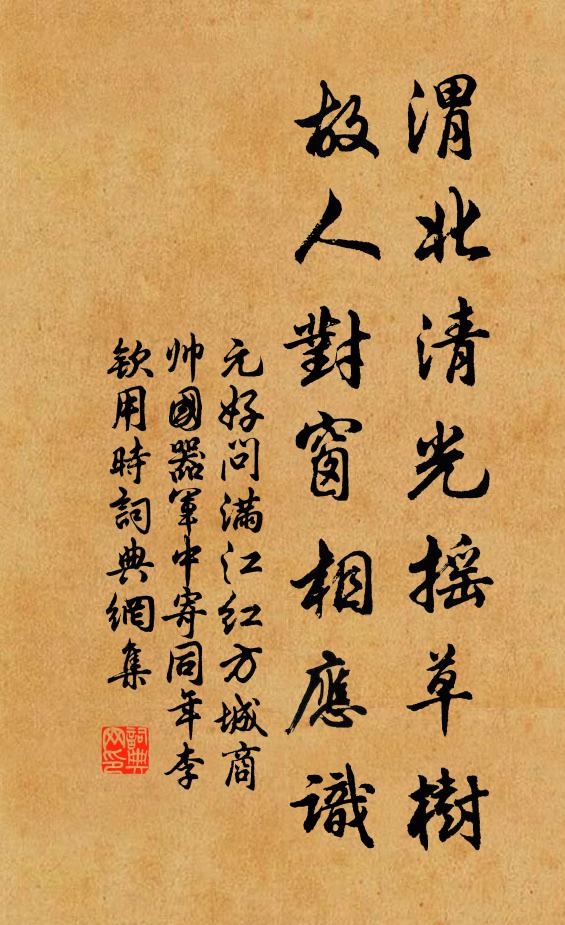 渭北清光摇草樹
故人對窗相應識
元好问滿江红方城商
帅國器军中寄同年李
欽用時詞典網集
詞典网印